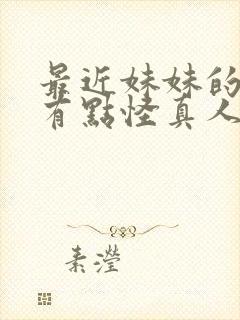 最近妹妹的
有點怪真人
素瀅